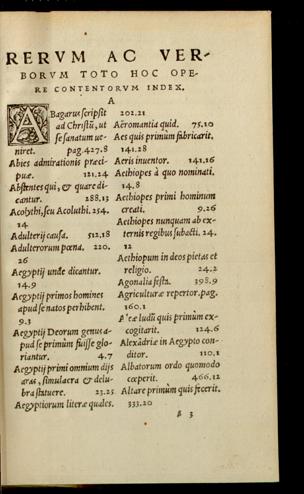 RERVM AC VER-
BORVM TOTO HOC OPE-
RE CONTENTORVM INDEX.
A
ABagarus scripsit
ad Christū, ut
se sanatum ue-
niret. pag. 427.8
Abies admirationis præci-
puæ. 121.24
Abstentes qui, & quare di-
cantur. 288.13
Acolythi, seu Acoluthi. 254.
14
Adulterij causa. 512.18
Adulterorum pœna. 220.
26
Aegyptij unde dicantur.
14.9
Aegyptij primos homines
apud se natos perhibent.
9.3
Aegyptij Deorum genus a-
pud se primùm fuisse glo-
riantur. 4.7
Aegyptij primi omnium dijs
aras, simulacra & delu-
bra statuere. 23.25
Aegyptiorum literæ quales.
202.21
Aëromantia quid. 75.10
Aes quis primùm fabricarit.
141.28
Aeris inuentor. 141.16
Aethiopes à quo nominati.
14.8
Aethiopes primi hominum
creati. 9.26
Aethiopes nunquam ab ex-
ternis regibus subacti. 24.
12
Aethiopum in deos pietas et
religio. 24.2
Agonalia festa. 398.9
Agriculturæ repertor. pag.
160.1
Aleæ ludū quis primùm ex-
cogitarit. 124.6
Alexādriæ in Aegypto con-
ditor. 110.1
Albatorum ordo quomodo
cœperit. 466.12
Altare primùm quis fecerit.
333.20
ß 3